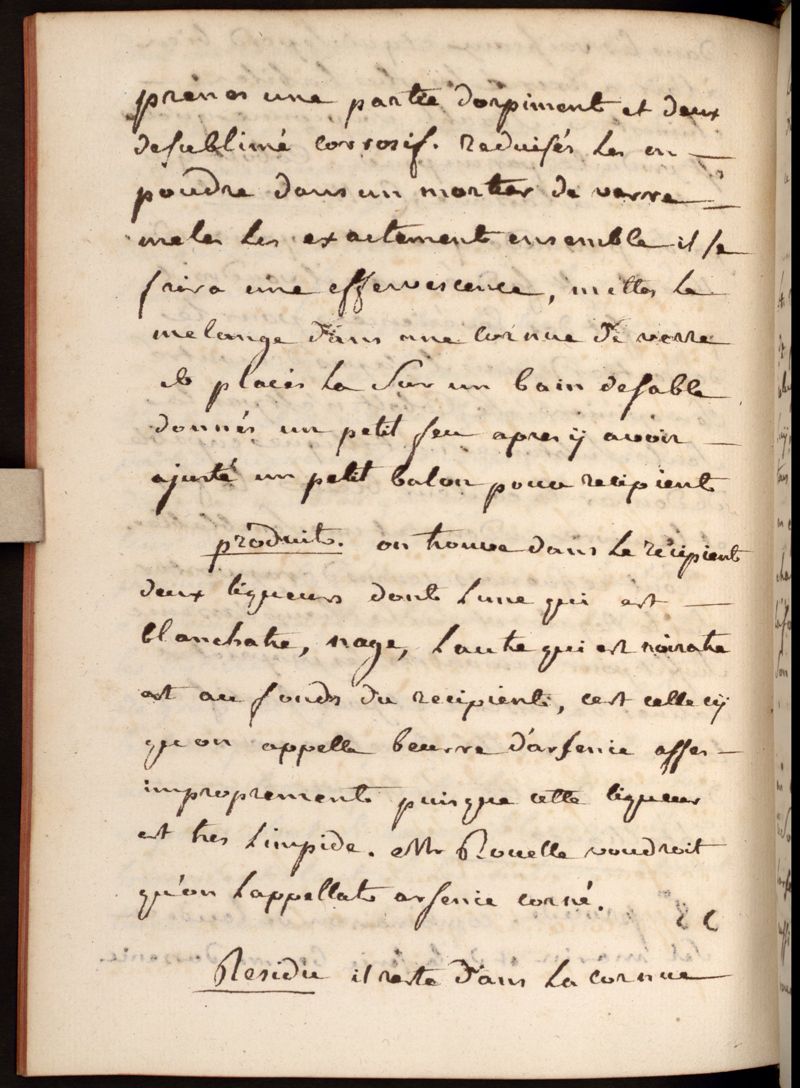 prenes une partie dorpiment et deux
desublimé corrosif. reduisés les en
poudre dans un mortier de verre
meles les exactement ensemble il se
frira une effervescence, mettes le
melange dans une cornue de verre
et placés la sur un bain desable
donnés un petit feu apres ÿ avoir
ajusté un petit balon pour recipient
produit. on trouve dans le récipient
deux liqueurs dont lune qui est
blanchatre, nage, lautre qui est noiratre
est au fonds du recipient, cest celle cÿ
quon appelle beurre d'arsenic asses
improprement puisque cette liqueur
est tres limpide. Mr Rouelle voudroit
qu'on lappellat arsenic corné.
Residu il reste dans la cornue